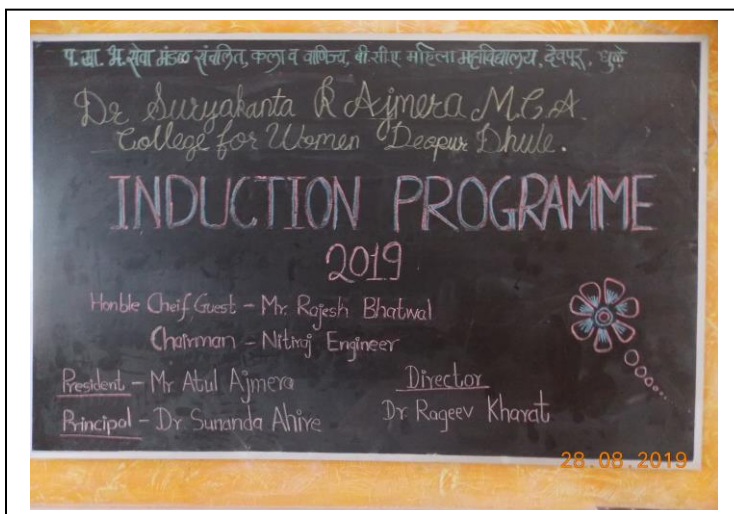 प. खा. भ. सेवा मंडळ संचलित, कला व वाणिज्य, बी.सी.ए महिला महाविद्यालय, देवपूर, धुळे
Dr Suryakanta R Ajmera M.C.A.
College for Women Deopur Dhule.
INDUCTION PROGRAMME
2019
Honble Cheif Guest - Mr. Rajesh Bhatwal
Chairman - Nitiraj Engineer
President - Mr Atul Ajmera
Principal - Dr. Sunanda Ahire
Director
Dr Rageev Kharat
28.08.2019